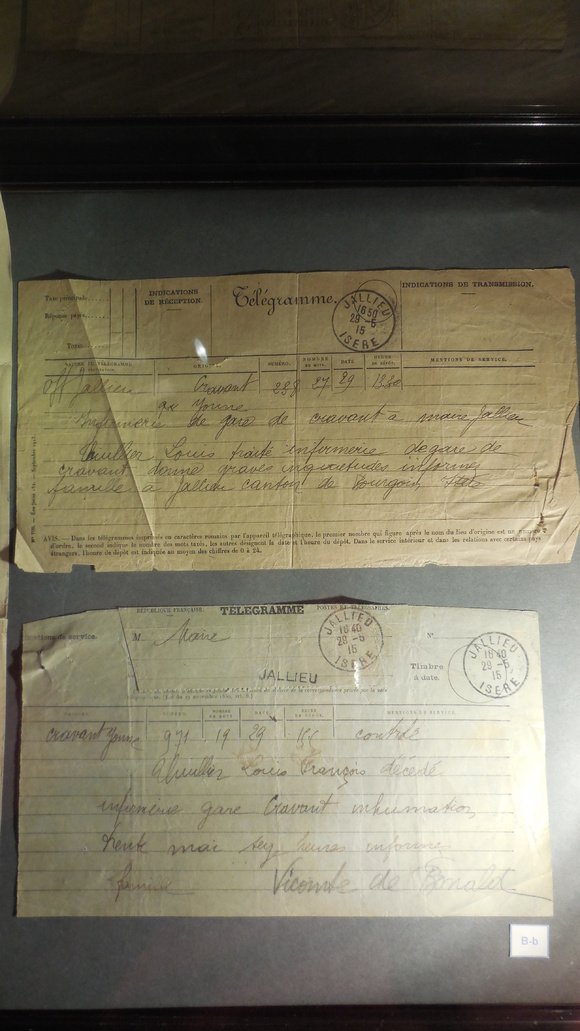 Taxe principale
Réponse payée
Total
INDICATIONS
DE RÉCEPTION.
Télégramme.
JALLIEU
1650
29-5
15
ISÈRE
INDICATIONS DE TRANSMISSION.
NUMÉRO.
NOMBRE
DE MOTS.
DATE
HEURE
DE DÉPÔT.
MENTIONS DE SERVICE.
off Jallieu Cravant 288 27 29 1230
Yonne
Infirmerie de gare de cravant à maire Jallieu
Lhuillier Louis traité infirmerie de gare de
cravant donne graves inquiétudes informez
famille à Jallieu canton de Bourgoin
AVIS. — Dans les télégrammes imprimés en caractères romains par l'appareil télégraphique, le premier nombre qui figure après le nom du lieu d'origine est un numéro
d'ordre, le second indique le nombre des mots taxés, les autres désignent la date et l'heure du dépôt. Dans le service intérieur et dans les relations avec certains pays
étrangers, l'heure de dépôt est indiquée au moyen des chiffres de 0 à 24.
RÉPUBLIQUE FRANÇAISE.
TÉLÉGRAMME
POSTES ET TÉLÉGRAPHES.
de service.
M. Maire
JALLIEU
JALLIEU
1640
29-5
15
ISÈRE
N°
Timbre
à date.
JALLIEU
1640
29-5
15
ISÈRE
NUMÉRO.
NOMBRE
DE MOTS.
DATE.
HEURE
DE DÉPÔT.
MENTIONS DE SERVICE.
cravant Yonne 971 19 29
Lhuillier Louis François décédé
infirmerie gare Cravant inhumation
trente mai seize heures informez
famille Vicomte de Bonald
B-b